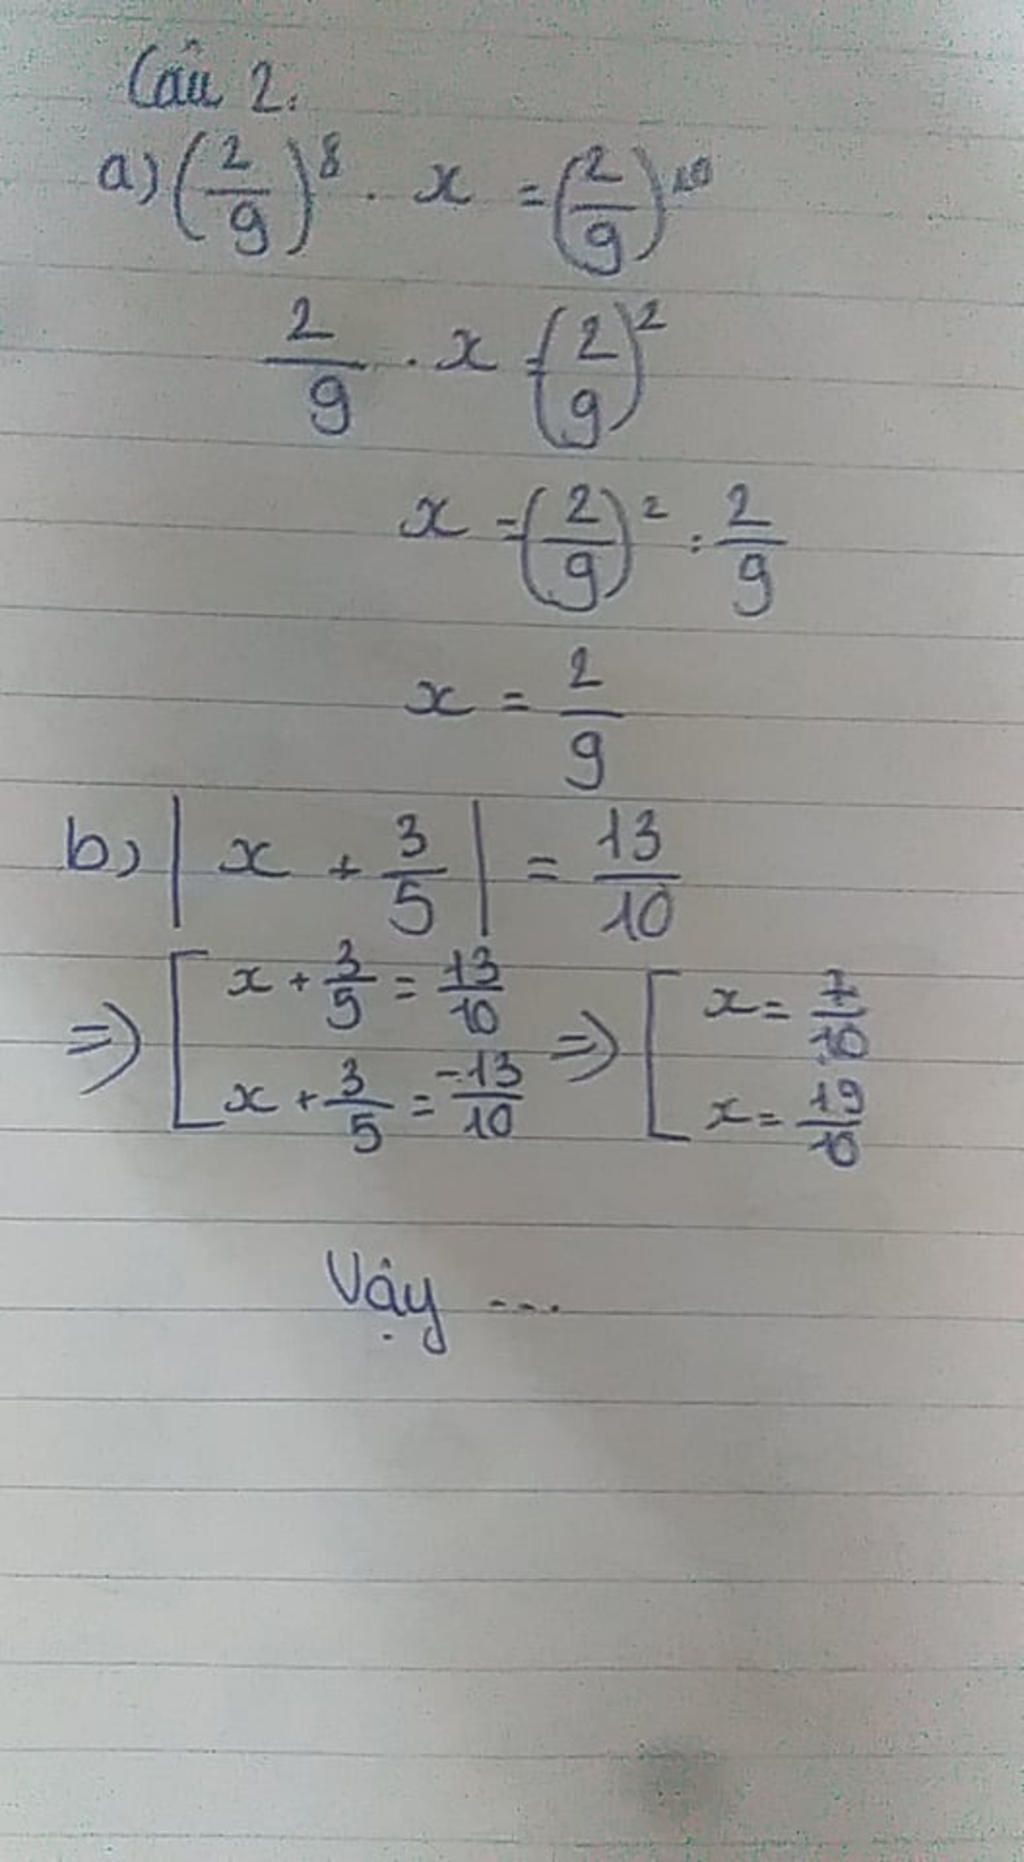 Câu 2.
a) (2/9)^8 . x = (2/9)^10
2/9 . x = (2/9)^2
x = (2/9)^2 : 2/9
x = 2/9
b) | x + 3/5 | = 13/10
=> [ x + 3/5 = 13/10 => [ x = 7/10
x + 3/5 = -13/10 x = 19/10
Vậy ...